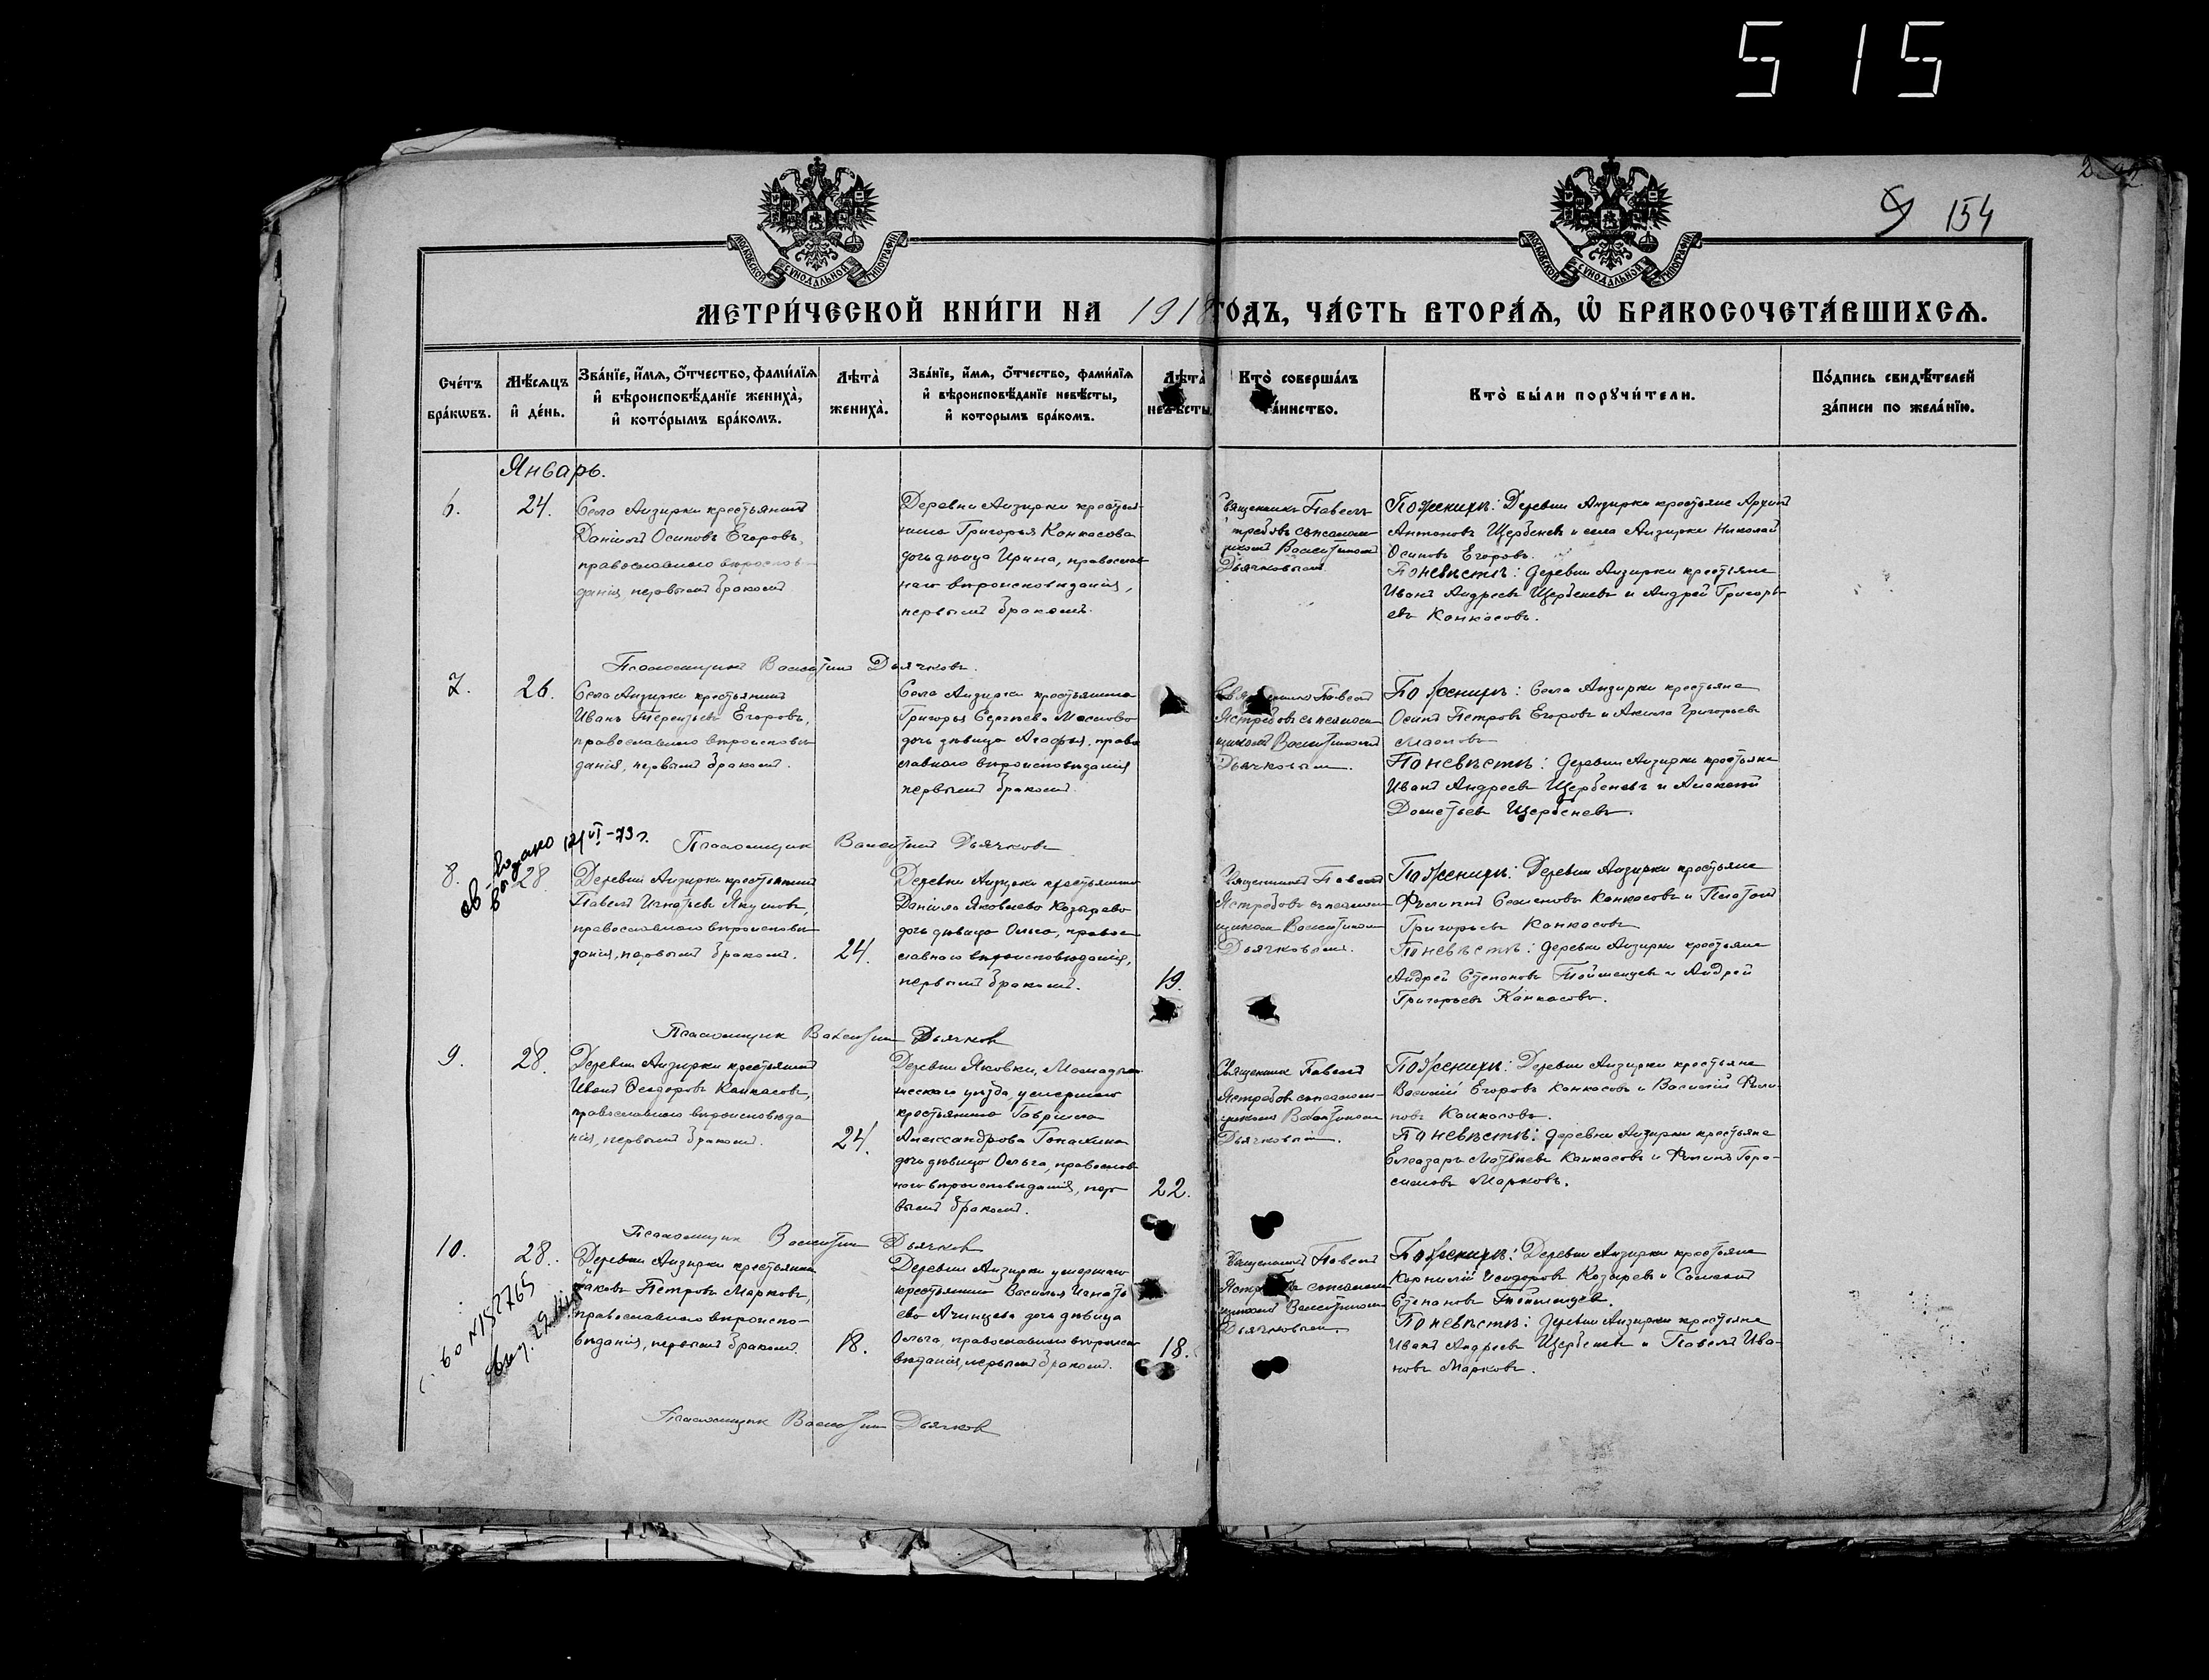 515
154
МОСКОВСКОЙ СѴНОДАЛЬНОЙ ТИПОГРАФІИ
МОСКОВСКОЙ СѴНОДАЛЬНОЙ ТИПОГРАФІИ
МЕТРИ́ЧЕСКОЙ КНИ́ГИ НА 1918 ГОДЪ, ЧА́СТЬ ВТОРА́Я, Ѡ БРАКОСОЧЕТА́ВШИХСЯ.
Сче́тъ бра́кѡвъ.
Мѣ́сяцъ и де́нь.
Зва́нїе, и́мя, ѻ́тчество, фами́лїя и вѣроисповѣ́данїе жениха̀, и кото́рымъ бра́комъ.
Лѣта̀ жениха̀.
Зва́нїе, и́мя, ѻ́тчество, фами́лїя и вѣроисповѣ́данїе невѣ́сты, и которымъ бра́комъ.
Лѣта̀ невѣ́сты
Кто̀ соверша́лъ та́инство.
Кто̀ бы́ли порꙋчи́тели.
По́дпись свидѣ́телей за́писи по жела́нїю.
Январь.
6.
24.
Села Анзирки крестьянинъ
Даніилъ Осиповъ Егоровъ,
православнаго вѣроисповѣ-
данія, первымъ бракомъ
Деревни Анзирки крестья-
нина Григорья Конкасова
дочь дѣвица Ирина, православ-
наго вѣроисповѣданія,
первымъ бракомъ.
Священникъ Павелъ
Ястребовъ съ псалом-
щикомъ Валентиномъ
Дьячковымъ.
По женихѣ: Деревни Анзирки крестьяне
Антоновъ Щербеневъ и села Анзирки Николай
Осиповъ Егоровъ.
По невѣстѣ: Деревни Анзирки крестьяне
Иванъ Андреевъ Щербеневъ и Андрей Григорь-
евъ Конкасовъ.
Псаломщикъ Валентинъ Дьячковъ.
7.
26.
Села Анзирки крестьянинъ
Иванъ Терентьевъ Егоровъ,
православнаго вѣроисповѣ-
данія, первымъ бракомъ.
Села Анзирки крестьянина
Григорья Сергѣева Маслова
дочь дѣвица Агафья, право-
славнаго вѣроисповѣданія
первымъ бракомъ.
Священникъ Павелъ
Ястребовъ съ псалом-
щикомъ Валентиномъ
Дьячковымъ.
По женихѣ: Села Анзирки крестьяне
Осипъ Петровъ Егоровъ и Акила Григорьевъ
Масловъ
По невѣстѣ: Деревни Анзирки крестьяне
Иванъ Андреевъ Щербеневъ и Алексѣй
Дометьевъ Щербеневъ.
Псаломщикъ Валентинъ Дьячковъ
8.
28.
Деревни Анзирки крестьянинъ
Павелъ Игнатьевъ Якушовъ,
православнаго вѣроисповѣ-
данія, первымъ бракомъ.
24.
Деревни Анзирки крестьянина
Даніила Яковлева Козырева
дочь дѣвица Ольга, право-
славнаго вѣроисповѣданія,
первымъ бракомъ.
19.
Священникъ Павелъ
Ястребовъ съ псалом-
щикомъ Валентиномъ
Дьячковымъ.
По женихѣ: Деревни Анзирки крестьяне
Филиппъ Семеновъ Конкасовъ и Платонъ
Григорьевъ Конкасовъ
По невѣстѣ: Деревни Анзирки крестьяне
Андрей Степановъ Тойменцевъ и Андрей
Григорьевъ Конкасовъ.
Псаломщикъ Валентинъ Дьячков
9.
28.
Деревни Анзирки крестьянинъ
Иванъ Ѳеодоровъ Конкасовъ,
православнаго вѣроисповѣда-
нія, первымъ бракомъ.
24.
Деревни Яковки, Мамадыш-
скаго уѣзда, умершаго
крестьянина Гавріила
Александрова
дочь дѣвица Ольга, православ-
наго вѣроисповѣданія, пер-
вымъ бракомъ.
22.
Священникъ Павелъ
Ястребовъ съ псалом-
щикомъ Валентиномъ
Дьячковымъ.
По женихѣ: Деревни Анзирки крестьяне
Василій Егоровъ Конкасовъ и Василій Фили-
повъ Конкасовъ.
По невѣстѣ: Деревни Анзирки крестьяне
Елеазаръ Матвѣевъ Конкасовъ и Филипъ Гера-
симовъ Марковъ.
Псаломщик Валентин Дьячков
10.
28.
Деревни Анзирки крестьянинъ
Яковъ Петровъ Марковъ,
православнаго вѣроиспо-
вѣданія, первымъ бракомъ.
18.
Деревни Анзирки умершаго
крестьянина Василья Игнать-
ева Ачинцева дочь дѣвица
Ольга, православнаго вѣроиспо-
вѣданія, первымъ бракомъ.
18.
Священникъ Павелъ
Ястребовъ съ псалом-
щикомъ Валентиномъ
Дьячковымъ.
По женихѣ: Деревни Анзирки крестьяне
Корнилій Исидоровъ Козыревъ и
Степановъ Тойменцевъ.
По невѣстѣ: Деревни Анзирки крестьяне
Иванъ Андреевъ Щербеневъ и Павелъ Ива-
новъ Марковъ.
Псаломщик Валентин Дьячков